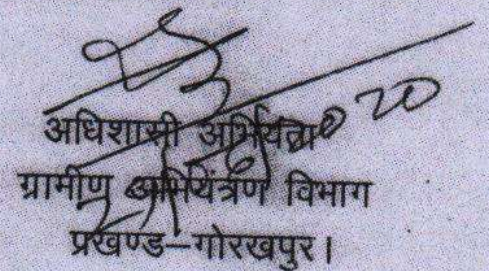 अधिशासी अभियंता
ग्रामीण अभियंत्रण विभाग
प्रखण्ड–गोरखपुर।